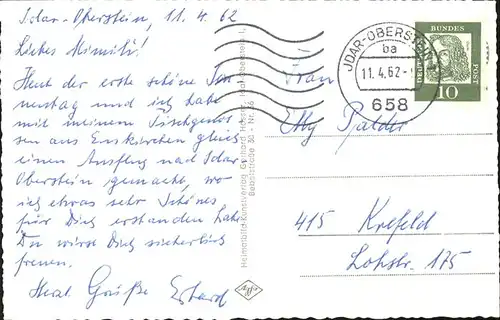 Idar-Oberstein, 11.4.62
Liebes Mimili!
Heut der erste schöne Son
nentag und ich habe
mit meinem Tischgenos
sen aus Euskirchen gleich
einen Ausflug nach Idar
Oberstein gemacht, wo
ich etwas sehr Schönes
für Dich erstanden habe
Du wirst Dich sicherlich
freuen.
Herzl. Grüße Erhard
Heimatbild-Kunstverlag Gerhard
JDAR-OBERSTEIN
ba
11.4.62-
658
DEUTSCHE
BUNDES
POST
10
Frau
Elly Pjalder
415 Krefeld
Lohstr. 175